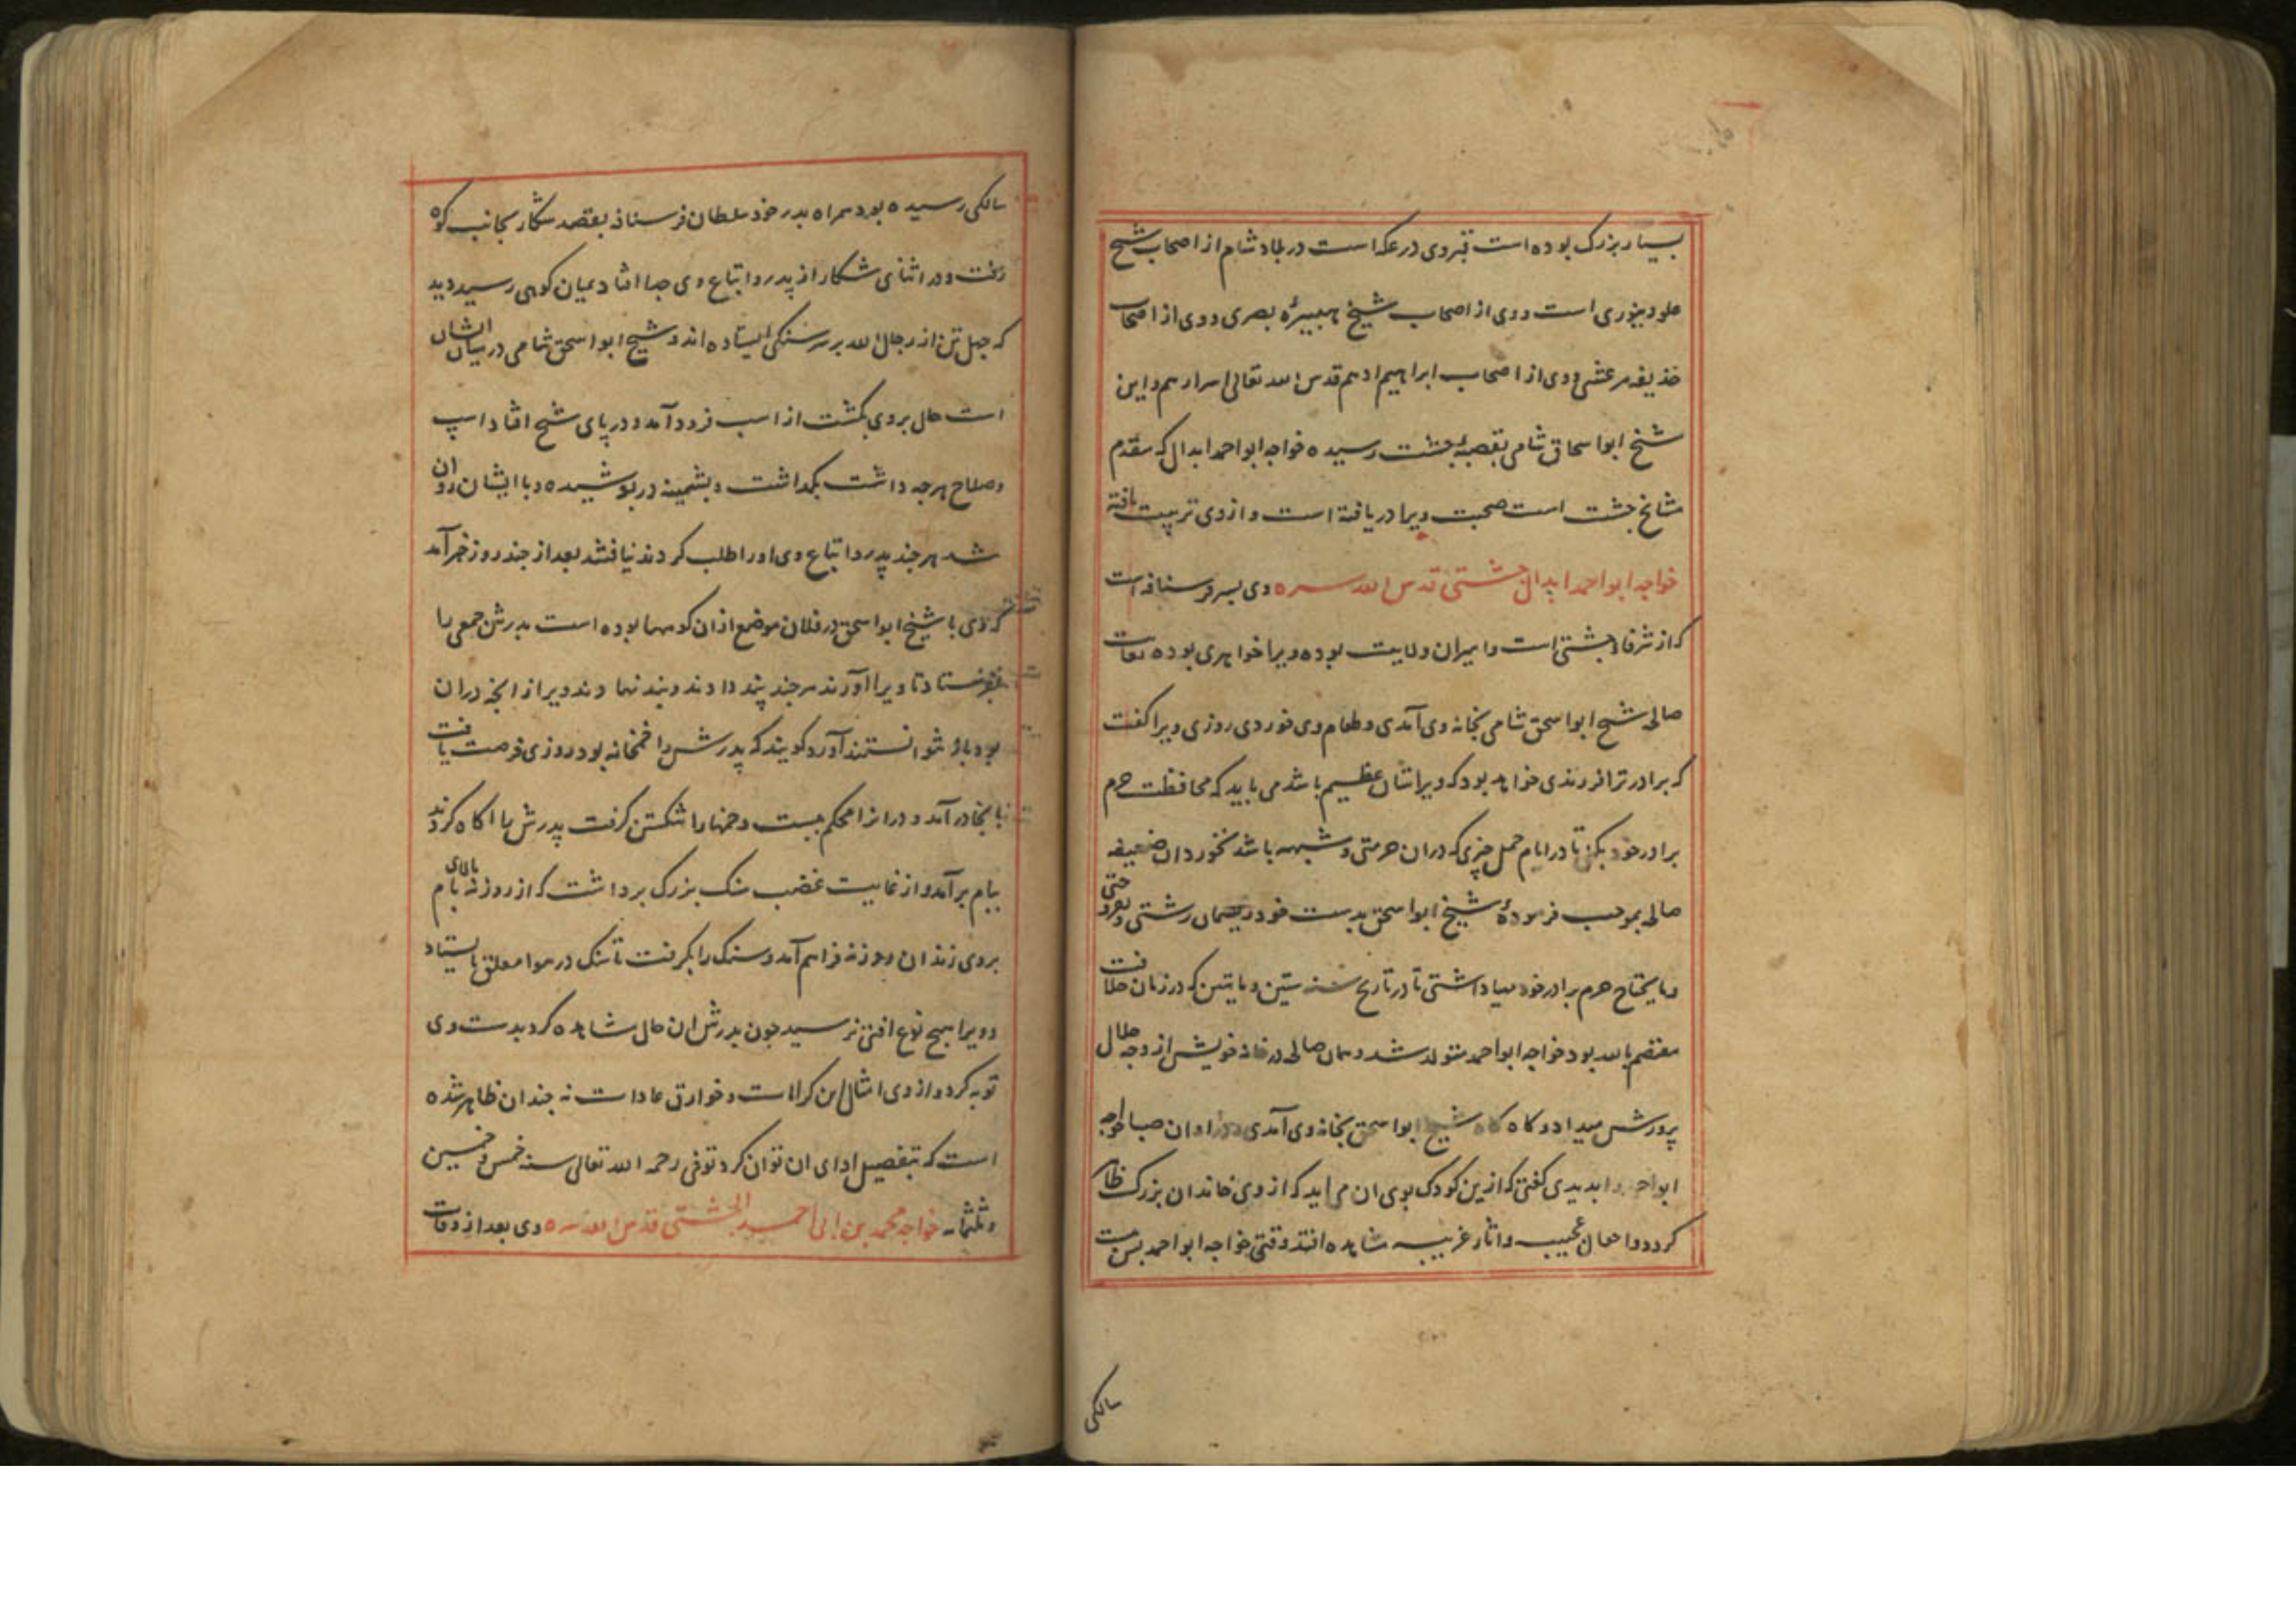 بسیار بزرک بوده است قبر وی در عکه است در بلاد شام از اصحاب شیخ
علو دینوری است و وی از اصحاب شیخ هبیرهٔ بصری و وی از اصحاب
حذیفه مرعشی و وی از اصحاب ابراهیم ادهم قدس الله تعالی اسرارهم و این
شیخ ابو اسحاق شامی بقصبهٔ چشت رسیده خواجه ابو احمد ابدال که مقدم
مشایخ چشت است صحبت ویرا دریافته است و از وی تربیت یافته
خواجه ابو احمد ابدال چشتی قدس الله سره وی پسر فرسنافه است
که از شرفاء چشتی است و امیران ولایت بوده ویرا خواهری بوده بغایت
صالحه شیخ ابو اسحق شامی بخانه وی آمدی و طعام وی خوردی روزی ویرا کفت
که برادر ترا فرزندی خواهد بود که ویرا شان عظیم باشد می باید که محافظت حرم
برادر خود بکنی تا در ایام حمل چیزی که در ان حرمتی و شبهه باشد نخورد ان ضعیفه
صالحه بموجب فرمودهٔ شیخ ابو اسحق بدست خود ریسمان رشتی و بفروختی
و مایحتاج حرم برادر خود میاداشتی تا در تاریخ سنه ستین و مایتین که در زمان خلافت
معتصم بالله بود خواجه ابو احمد متولد شد و همان صالحه در خانه خویش از وجه حلال
پرورش میداد و کاه کاه شیخ ابو اسحق بخانه وی آمدی و در اوان صبا خواجه
ابو احمد را بدیدی کفتی که ازین کودک بوی ان می اید که از وی خاندان بزرک ظاهر
کردد و احوال عجیب و اثار غریب مشاهده افتد وقتی خواجه ابو احمد بسن بیست
سالکی
سالکی رسیده بود همراه پدر خود سلطان فرسنافه بقصد شکار بجانب کوه
رفت و در اثنای شکار از پدر و اتباع وی جدا افتاد بمیان کوهی رسید دید
که چهل تن از رجال الله بر سر سنکی ایستاده اند و شیخ ابو اسحق شامی در میان ایشان
است حال بر وی بکشت از اسب فرود آمد و در پای شیخ افتاد اسپ
و صلاح هرچه داشت بکذاشت و پشمینه در پوشیده و با ایشان روان
شد هر چند پدر و اتباع وی او را طلب کردند نیافتند بعد از چند روز خبر آمد
که وی با شیخ ابو اسحق در فلان موضع از ان کوهها بوده است پدرش جمعی را
بفرستاد تا ویرا آورند هر چند پند دادند و بند نهادند ویرا از انچه در ان
بود باز نتوانستند آورد کویند که پدرش را خمخانه بود روزی فرصت یافت
بانجا در آمد و در انرا محکم ببست و خمها را شکستن کرفت پدرش را اکاه کردند
ببام بر آمد و از غایت غضب سنک بزرک برداشت که از روزنه بالای بام
بروی زند ان روزنه فراهم آمد و سنک را بکرفت تا سنک در هوا معلق بایستاد
و ویرا هیچ نوع افتی نرسید چون پدرش ان حال مشاهده کرد بدست وی
توبه کرد و از وی امثال این کرامات و خوارق عادات نه چندان ظاهر شده
است که بتفصیل ادای ان توان کرد توفی رحمه الله تعالی سنه خمس و خمسین
و ثلثمایه خواجه محمد بن ابی احمد الچشتی قدس الله سره وی بعد از وفات